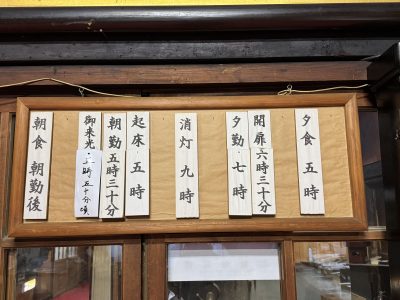 夕食 五時
開扉 六時三十分
夕勤 七時
消灯 九時
起床 五時
朝勤 五時三十分
御来光 時五十分頃
朝食 朝勤後